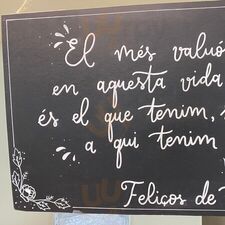 El més valuó
en aquesta vida
és el que tenim,
a qui tenim
Feliços de